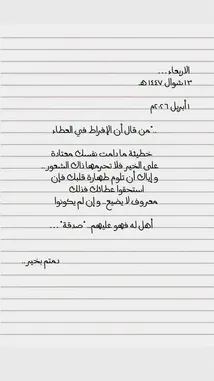 الأربعاء ...
١٣ شوال ١٤٤٧ هـ
١ أبريل ٢٠٢٦م
.."من قال أن الإفراط في العطاء
خطيئة ما دامت نفسك معتادة
على الخير فلا تحرمها ذاك الشعور ..
و إياك أن تلوم طهارة قلبك فإن
استحقوا عطائك فذلك
معروف لا يضيع .. و إن لم يكونوا
أهل له فهو عليهم .. "صدقة" ...
دمتم بخير ..